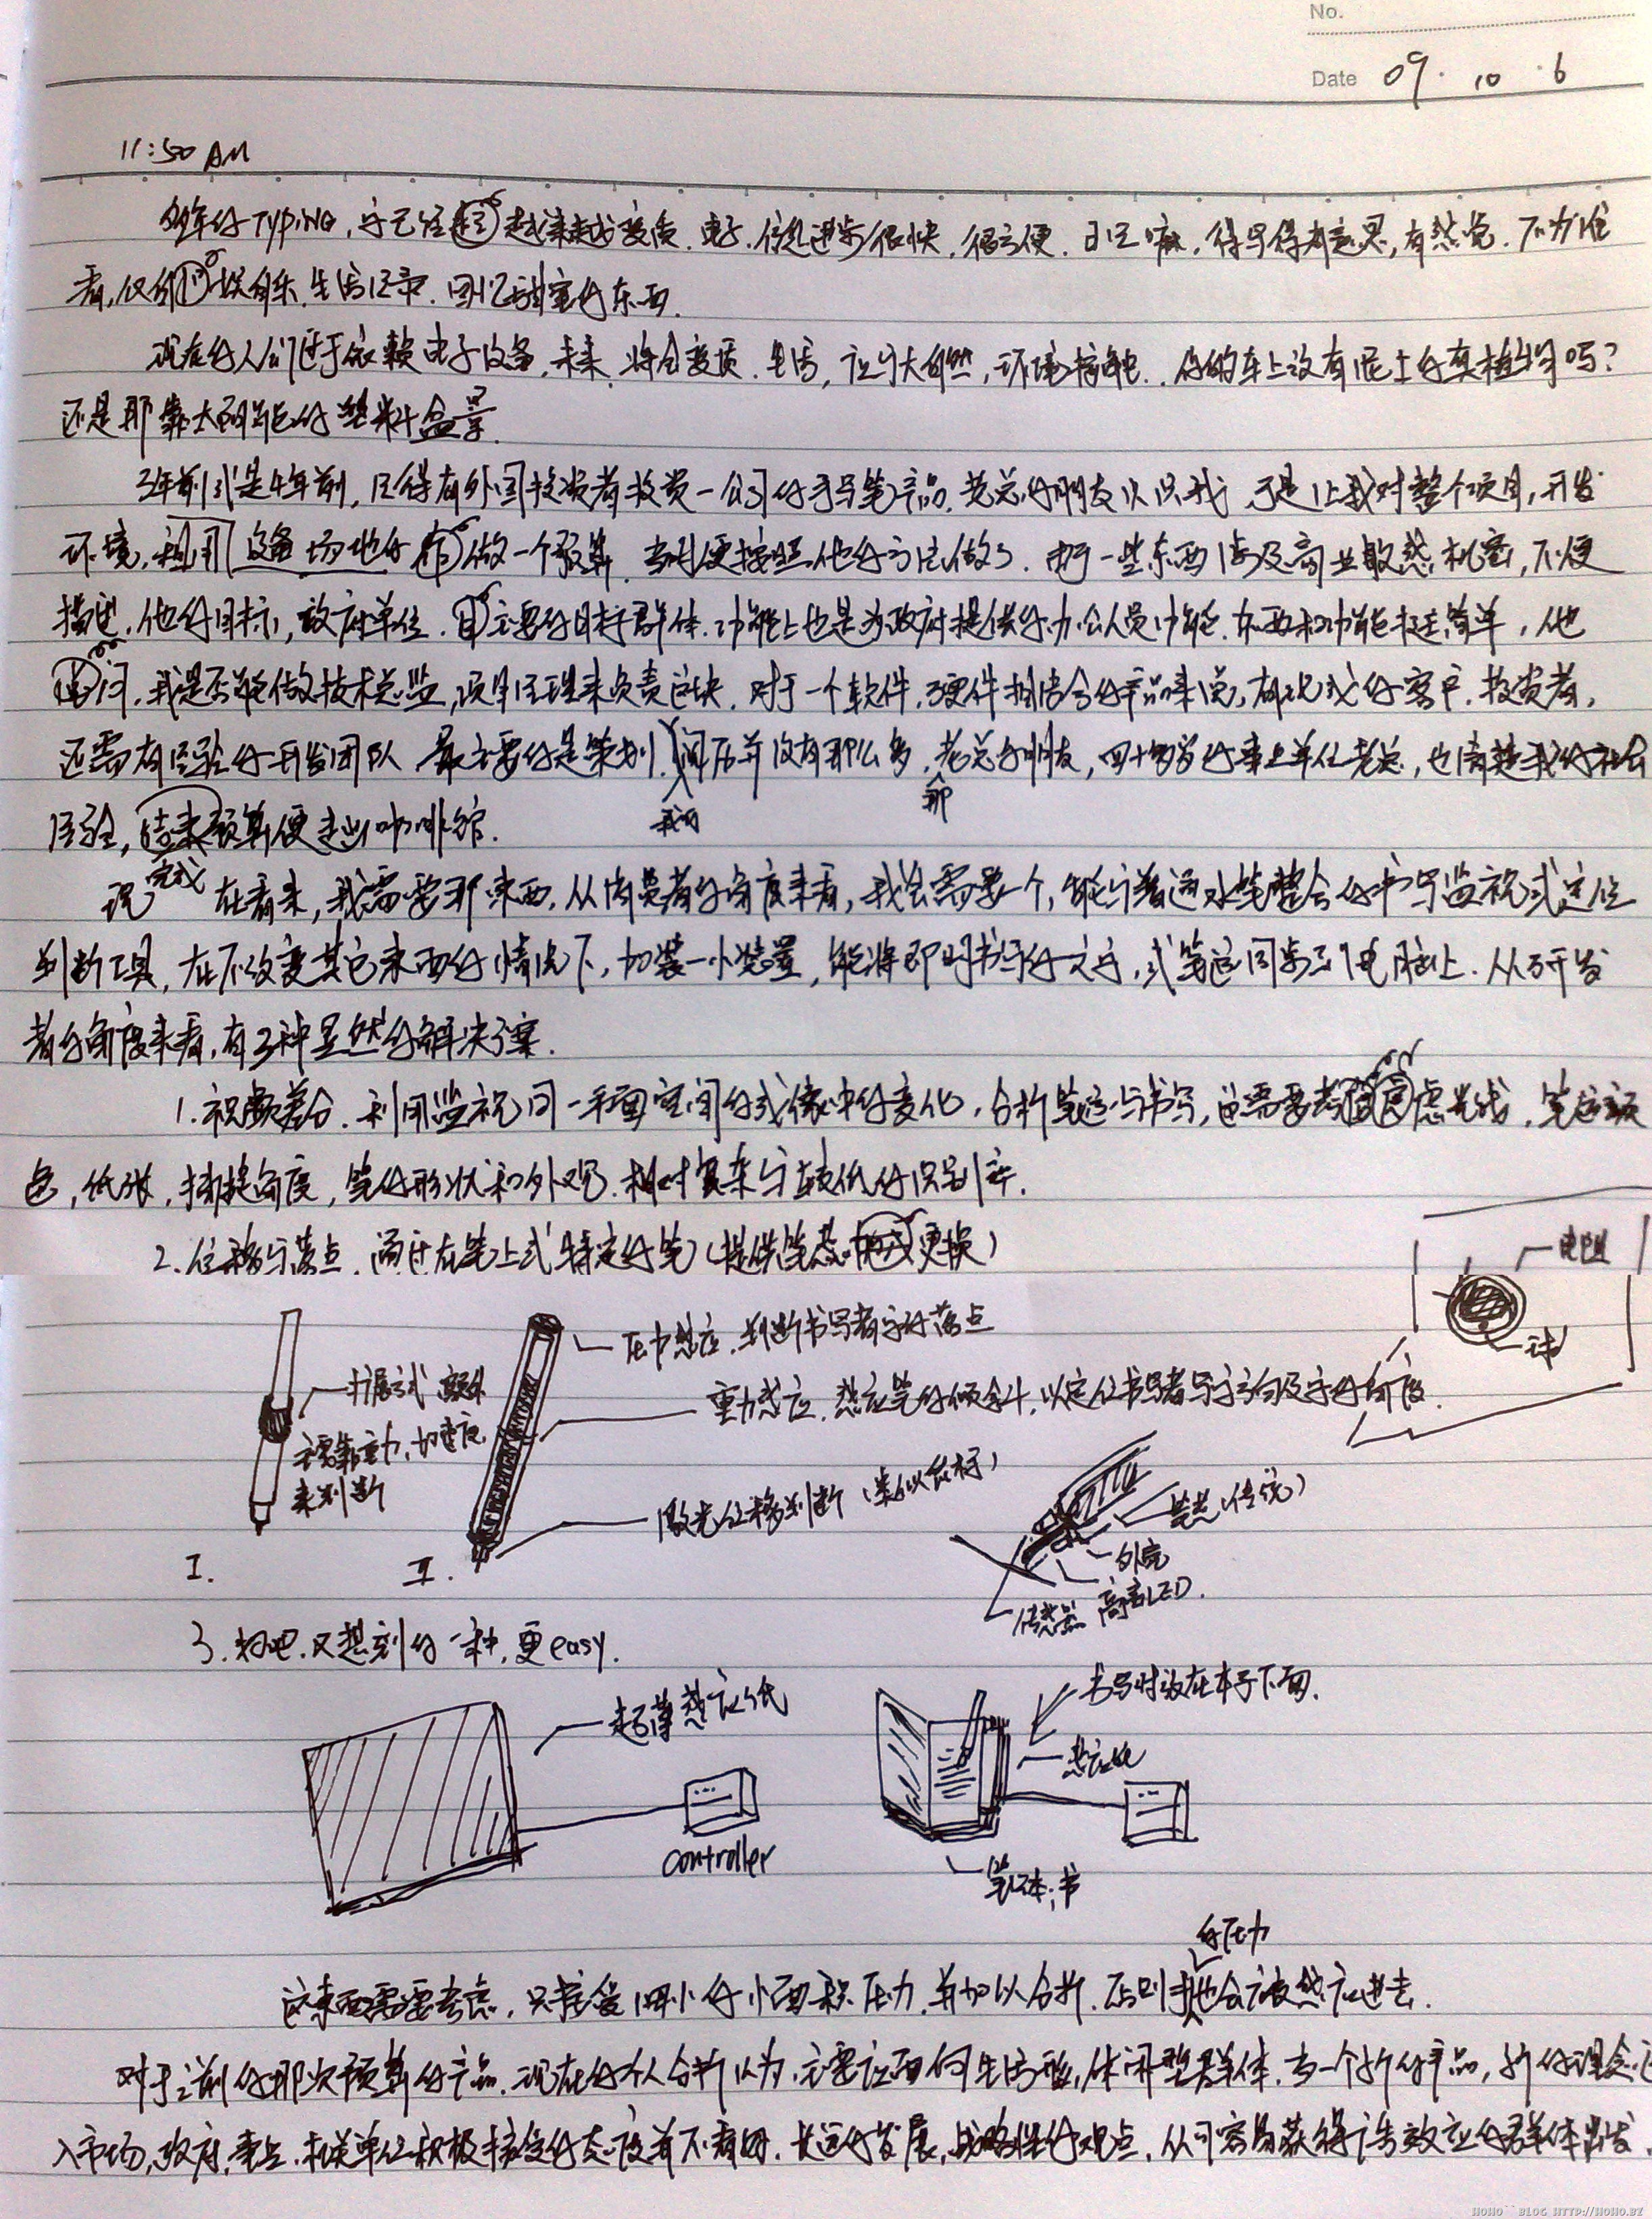 No.
Date 09.10.6
11:50 AM
多年的TYPING,字已经越来越变质.电子.信息进步很快,很方便.日记嘛,得写得有意思,有感觉.不为谁
看,仅自娱自乐.生活记录.回忆甜蜜的东西.
现在的人们过于依赖电子设备,未来,将会变质.生活,应与大自然,环境接触.你的车上没有泥土的真植物吗?
还是那靠太阳能的塑料盆景.
3年前或是4年前,记得有外国投资者投资一公司的手写笔产品.老总的朋友认识我 于是让我对整个项目,开发
环境,设备场地的做一个预算.当时便按照他的方法做了.由于一些东西涉及商业敏感机密,不便
描述.他的目标,政府单位.主要的目标群体.功能上也是为政府提供的办公人员功能.东西和功能极其简单,他
问,我是否能做技术总监,项目经理来负责这块.对于一个软件,硬件相结合的产品来说,有现成的客户.投资者,
还需有经验的开发团队 最主要的是策划.我的阅历并没有那么多,那老总的朋友,四十多岁的事业单位老总,也清楚我的社会
经验,完成预算便走出咖啡馆.
现在看来,我需要那东西.从消费者的角度来看,我会需要一个,能与普通水笔整合的书写监视或定位
判断工具,在不改变其它东西的情况下,加装一小装置,能将即时书写的文字,或笔迹同步到电脑上.从开发
者的角度来看,有3种显然的解决方案.
1.视频差分.利用监视同一平面空间的成像中的变化,分析笔迹与书写,这需要考虑光线.笔迹颜
色,纸张,捕捉角度,笔的形状和外观.相对复杂与较低的识别率.
2.位移与落点.通过在笔上或特定的笔(提供笔芯更换)
电阻
压力感应.判断书写者字的落点
扩展式 额外
主要靠重力,加速度
来判断
重力感应.感应笔的倾斜,以定位书写者写字方向及字的角度.
激光位移判断(类似鼠标)
笔芯(传统)
外壳
高亮LED.
传感器
I.
II.
3.好吧.又想到的一种,更easy.
超薄感应纸
书写时放在本子下面.
感应纸
controller
笔记本;书
的压力
这东西需要考虑.只接受细小的小面积压力.并加以分析.否则手也会被感应进去.
对于之前的那次预算的产品.现在的个人分析认为.主要应面向生活形,休闲型群体.当一个新的产品,新的理念进
入市场,政府.事业.相关单位积极接受的态度并不看好.长远的发展,战略性的观点.从可容易获得广告效应的群体出发.
HOHO``BLOG HTTP://HOHO.BZ